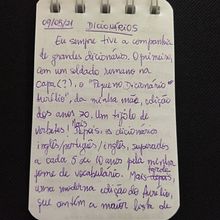 09/03/21 DICIONÁRIOS
Eu sempre tive a companhia
de grandes dicionários. O primeiro,
com um soldado romano na
capa (?), o "Pequeno Dicionário
Aurélio", da minha mãe, edição
dos anos 70. Um tijolo de
verbetes! Mais
Depois, os dicionários
inglês/português/inglês, superados
a cada 5 ou 10 anos pela minha
fome de vocabulário. Mais tarde,
uma moderna edição do Aurélio,
que contém a maior lista de